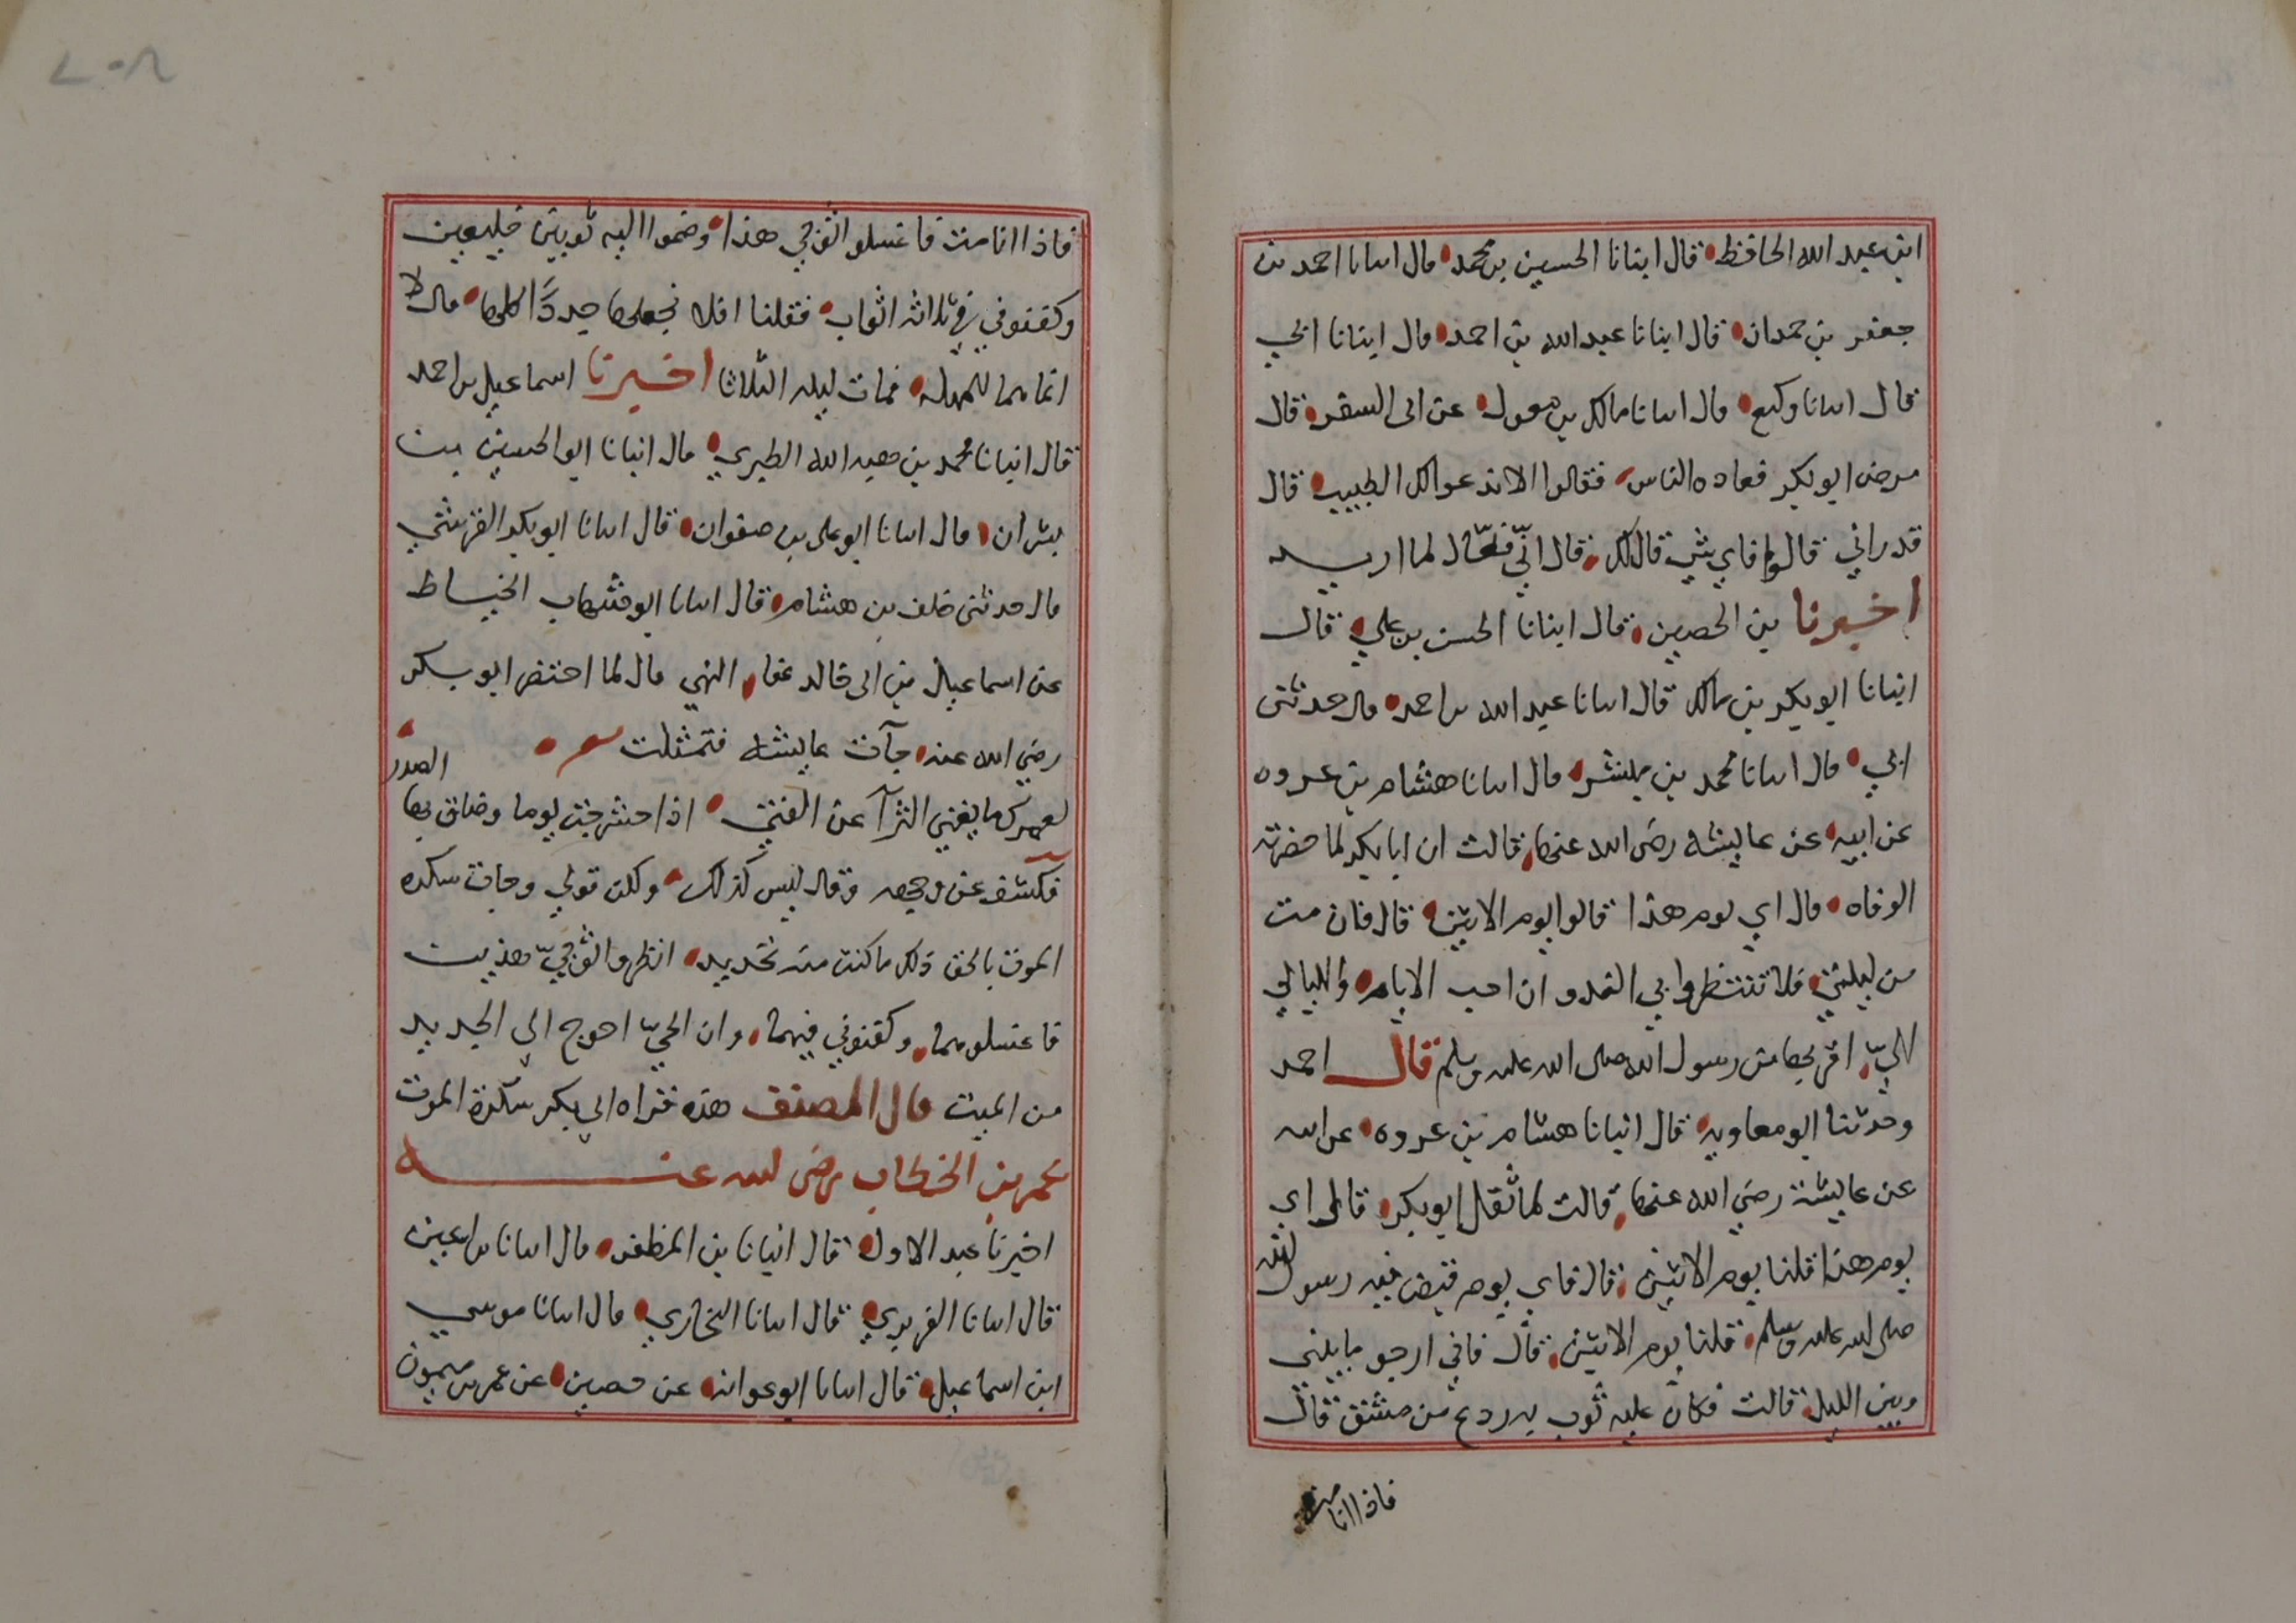 ابن عبد الله الحافظ قال انبانا الحسين بن محمد قال انبانا احمد بن
جعفر بن حمدان قال انبانا عبد الله بن احمد قال انبانا ابي
قال انبانا وكيع قال انبانا مالك بن مغول عن ابى السفر قال
مرض ابو بكر فعاده الناس فقالوا الا ندعوا لك الطبيب قال
قد راني قالوا فاي شي قال لك قال اني فعّال لما اريد
اخبرنا بن الحصين قال انبانا الحسن بن علي قال
انبانا ابو بكر بن مالك قال انبانا عبد الله بن احمد قال حدثنى
ابي قال انبانا محمد بن ميسر قال انبانا هشام بن عروه
عن ابيه عن عايشه رضى الله عنها قالت ان ابا بكر لما حضرته
الوفاه قال اي يوم هذا قالوا يوم الاثنين قال فان مت
من ليلتي فلا تنتظروا بي الغد و ان احب الايام والليالي
اليّ اقربها من رسول الله صلى الله عليه وسلم قال احمد
وحدثنا ابو معاويه قال انبانا هشام بن عروه عن ابيه
عن عايشة رضي الله عنها قالت لما ثقل ابو بكر قال اي
يوم هذا قلنا يوم الاثنين قال فاي يوم قبض فيه رسول الله
صلى الله عليه وسلم قلنا يوم الاثنين قال فاني ارجو ما بيني
وبين الليل قالت فكان عليه ثوب به ردع من مشق قال
فاذا انا مت
فاذا انا مت فاغسلوا ثوبي هذا وضموا اليه ثوبين جديدين
وكفنوني في ثلاثه اثواب فقلنا افلا نجعلها جددًا كلها قال لا
انما هما للمهله فمات ليله الثلاثا اخبرنا اسماعيل بن احمد
قال انبانا محمد بن هبه الله الطبري قال انبانا ابو الحسين بن
بشران قال انبانا ابو على بن صفوان قال انبانا ابو بكر القرشي
قال حدثنى خلف بن هشام قال انبانا ابو شهاب الخياط
عن اسماعيل بن ابى خالد عن البهي قال لما احتضر ابو بكر
رضي الله عنه جآت عايشه فتمثلت شعر
لعمرك ما يغني الثرآ عن الفتي اذا حشرجت يوما وضاق بها الصدر
فكشف عن وجهه وقال ليس كذلك ولكن قولي وجات سكره
الموت بالحق ذلك ما كنت منه تحيد انظروا ثوبيّ هذين
فاغسلوهما وكفنوني فيهما وان الحيّ احوج الي الجديد
من الميت قال المصنف هذه قراه ابي بكر سكرة الموت
عمر بن الخطاب رضى الله عنه
اخبرنا عبد الاول قال انبانا بن المظفر قال انبانا بن اعين
قال انبانا الفربري قال انبانا البخاري قال انبانا موسي
ابن اسماعيل قال انبانا ابو عوانه عن حصين عن عمر بن ميمون